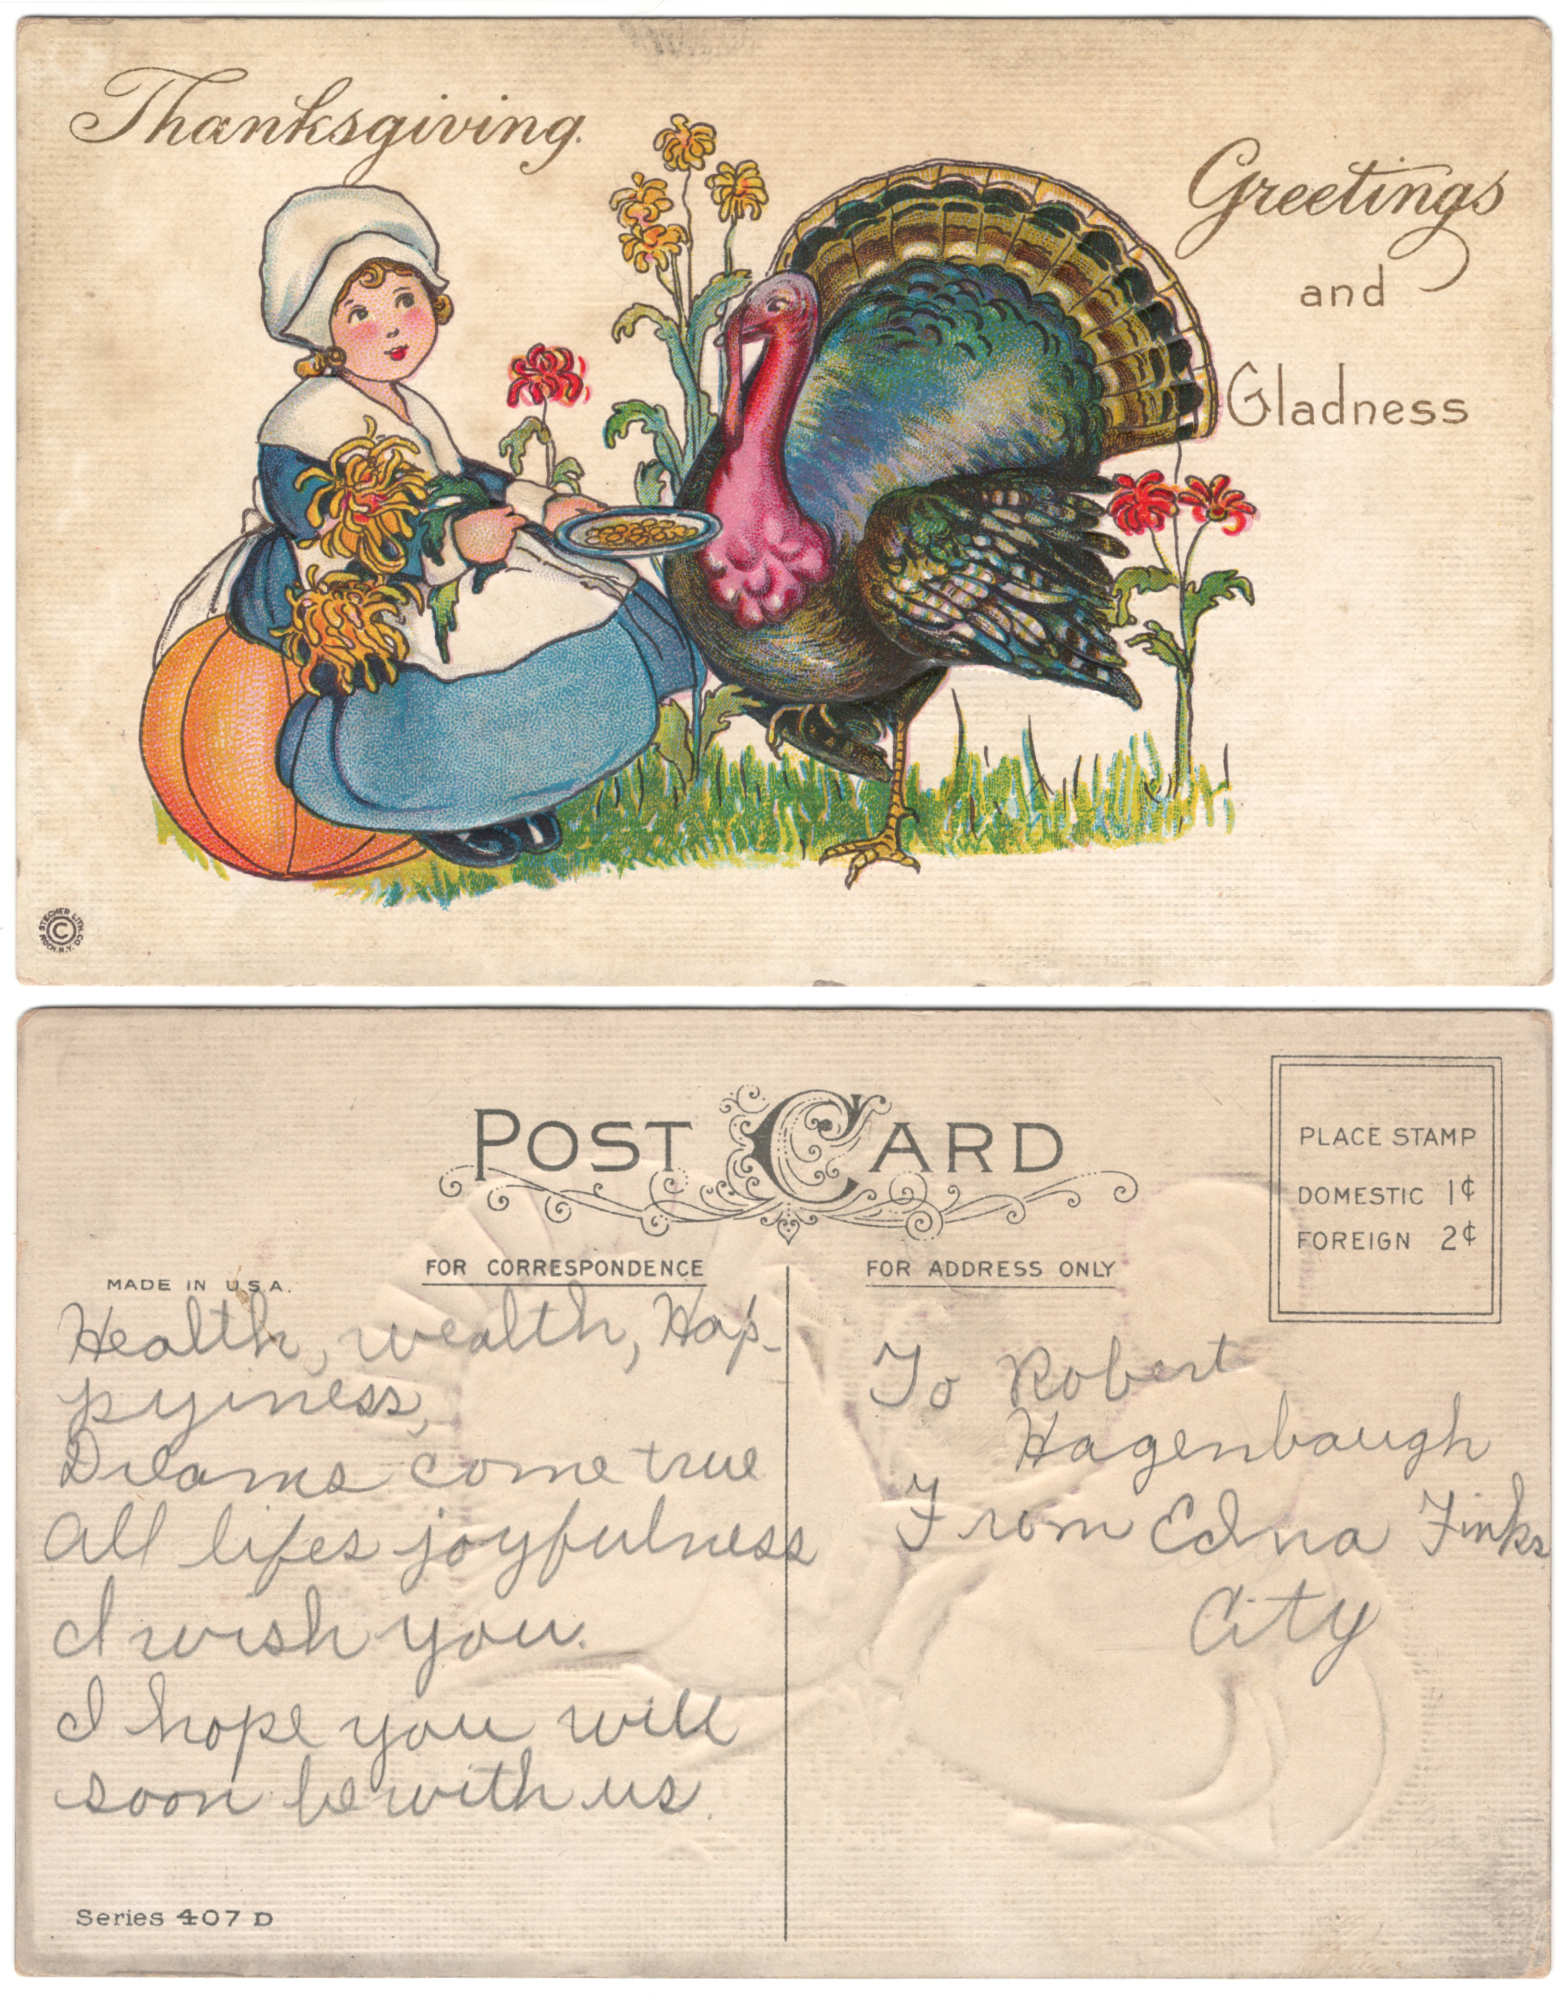 Thanksgiving
Greetings
and
Gladness
STECHER LITH. CO.
ROCH. N.Y.
C
POST CARD
PLACE STAMP
DOMESTIC 1¢
FOREIGN 2¢
MADE IN U.S.A.
FOR CORRESPONDENCE
FOR ADDRESS ONLY
Health, wealth, Hap-
pyiness,
Dreams come true
All lifes joyfulness
I wish you.
I hope you will
soon be with us.
To Robert
Hagenbaugh
From Edna Finks
City
Series 407 D